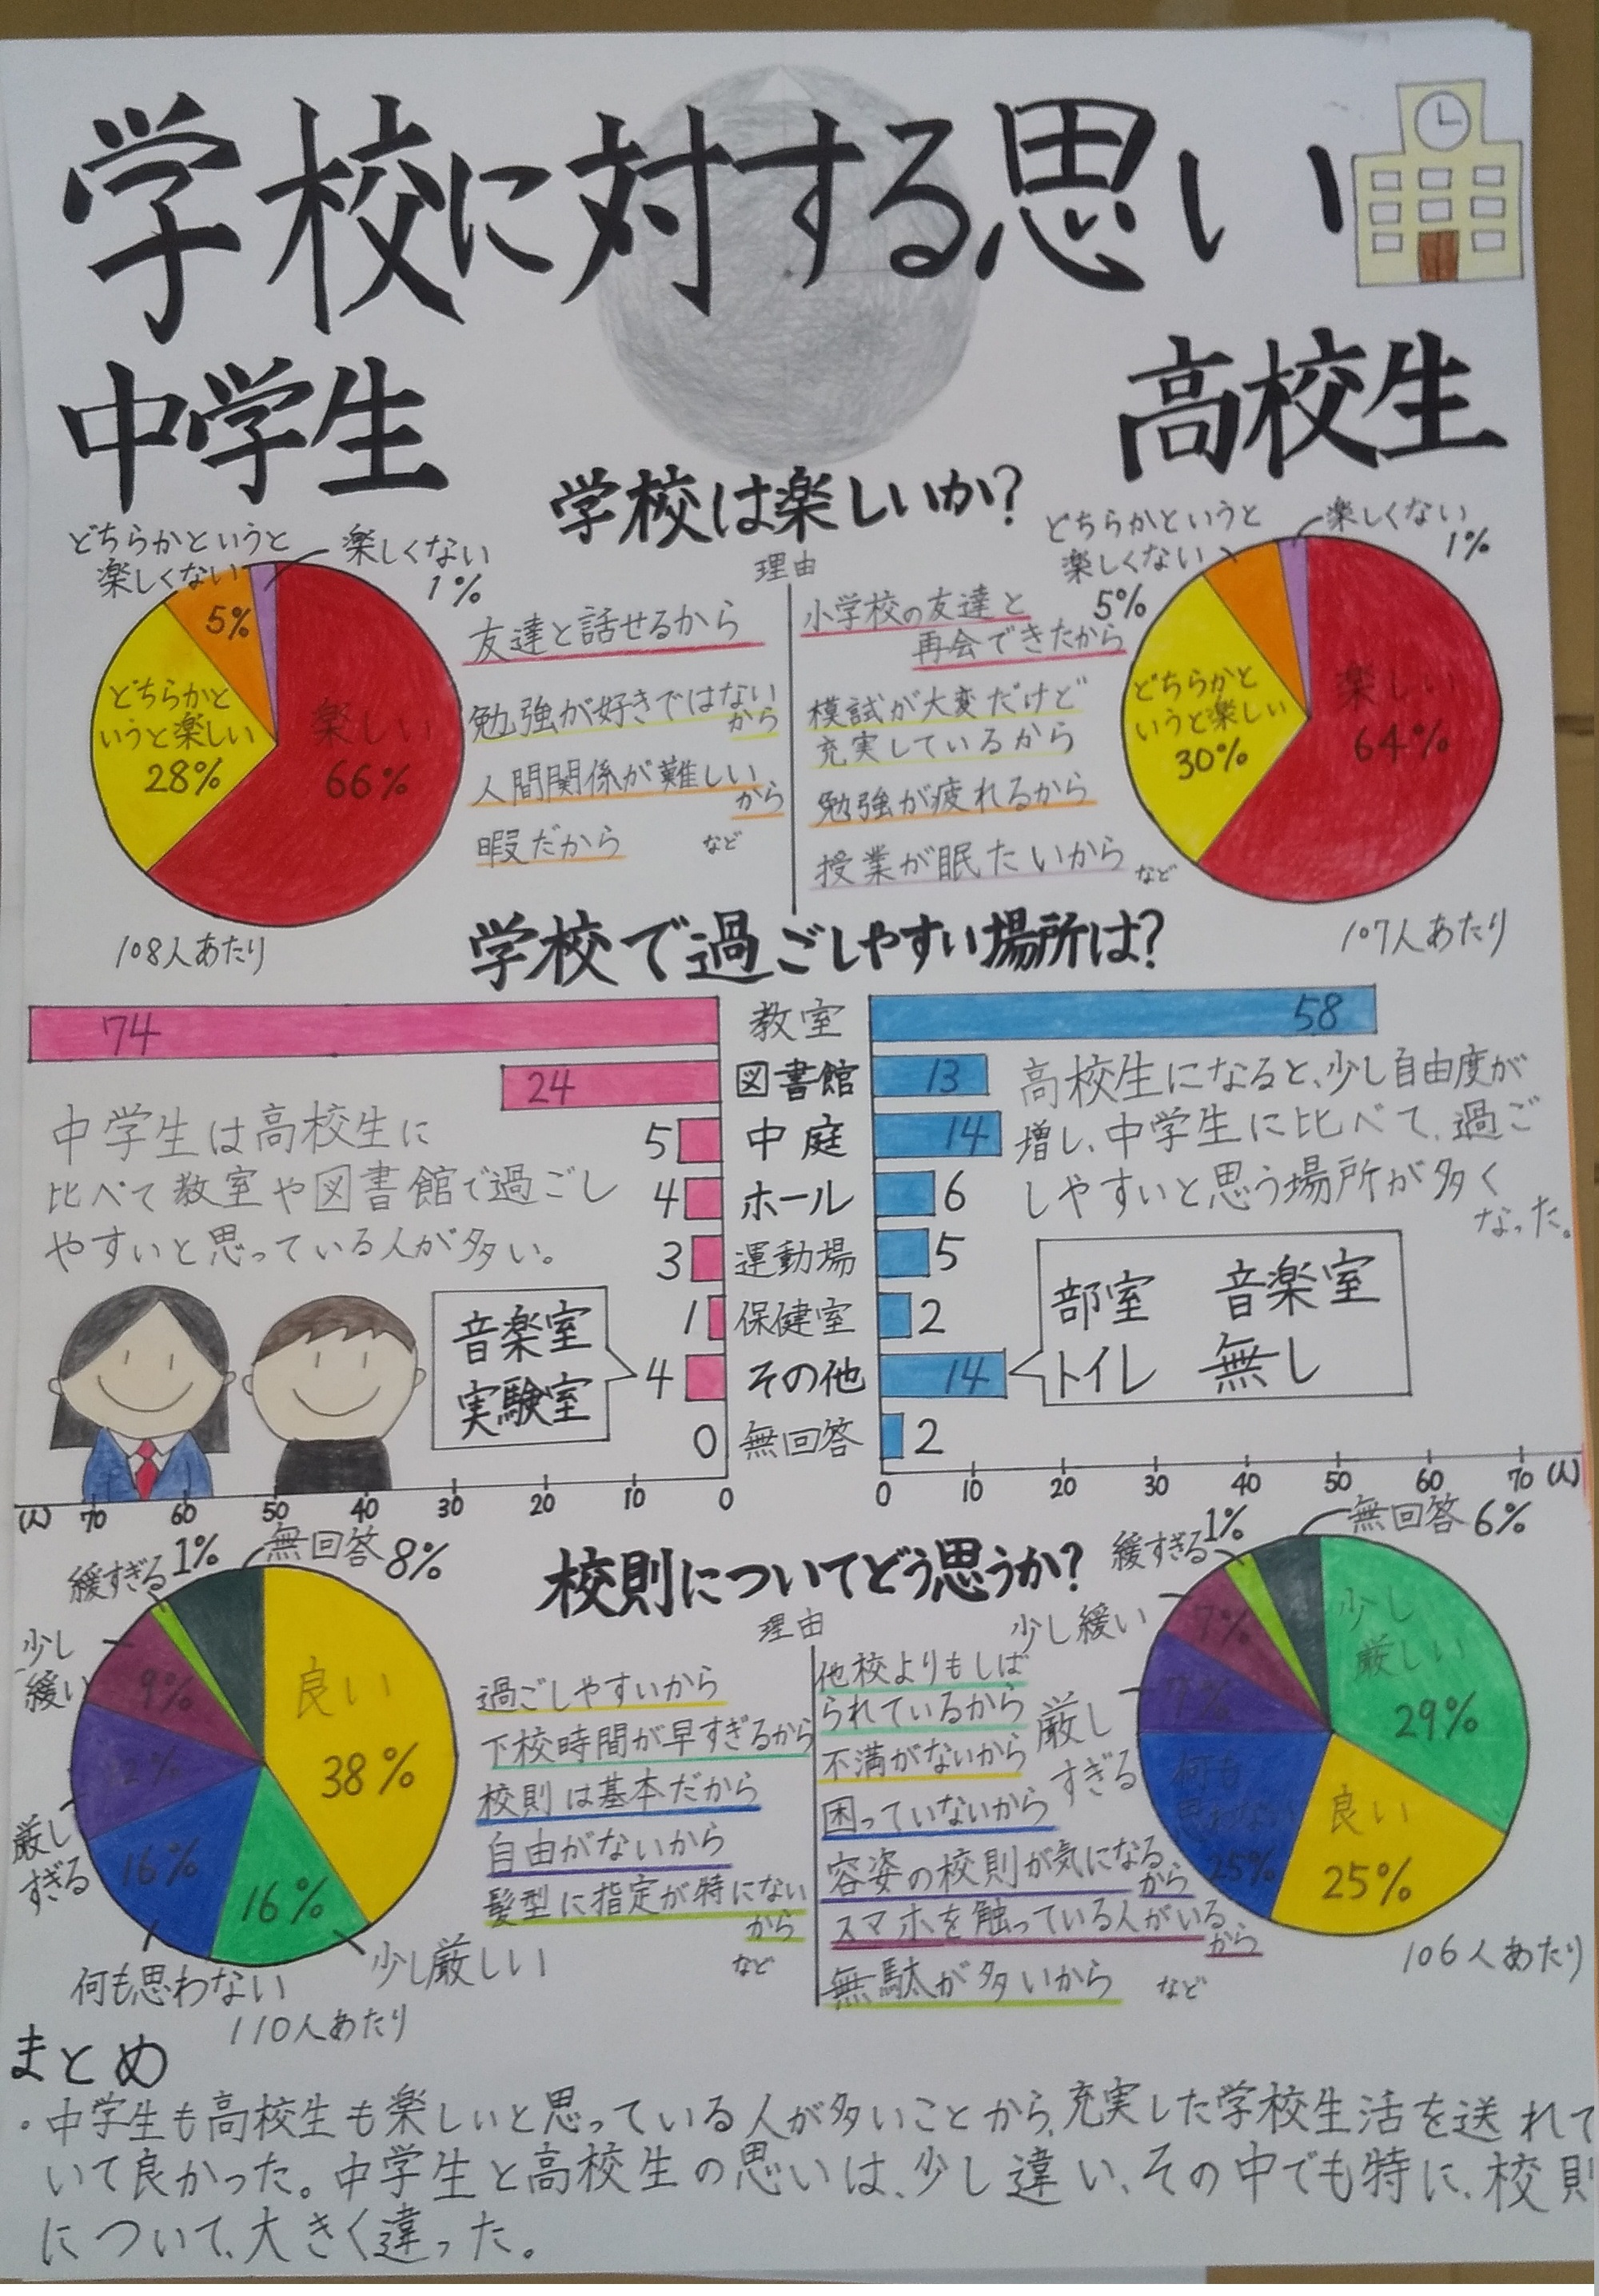 学校に対する思い
中学生
高校生
学校は楽しいか?
どちらかというと
楽しくない
5%
楽しくない
1%
どちらかと
いうと楽しい
28%
楽しい
66%
108人あたり
理由
友達と話せるから
勉強が好きではない
から
人間関係が難しい
から
暇だから
など
小学校の友達と
再会できたから
模試が大変だけど
充実しているから
勉強が疲れるから
授業が眠たいから
など
どちらかというと
楽しくない
5%
楽しくない
1%
どちらかと
いうと楽しい
30%
楽しい
64%
107人あたり
学校で過ごしやすい場所は?
74 教室 58
24 図書館 13
5 中庭 14
4 ホール 6
3 運動場 5
1 保健室 2
4 その他 14
0 無回答 2
中学生は高校生に
比べて教室や図書館で過ごし
やすいと思っている人が多い。
音楽室
実験室
高校生になると、少し自由度が
増し、中学生に比べて、過ご
しやすいと思う場所が多く
なった。
部室 音楽室
トイレ 無し
(人) 70 60 50 40 30 20 10 0
0 10 20 30 40 50 60 70 (人)
校則についてどう思うか?
緩すぎる 1%
無回答 8%
少し
緩い
9%
良い
38%
12%
厳し
すぎる
16%
16%
何も思わない
少し厳しい
110人あたり
理由
過ごしやすいから
下校時間が早すぎるから
校則は基本だから
自由がないから
髪型に指定が特にない
から
など
他校よりもしば
られているから
不満がないから
困っていないから
容姿の校則が気になる
から
スマホを触っている人がいる
から
無駄が多いから
など
緩すぎる 1%
無回答 6%
少し緩い
7%
少し
厳しい
29%
厳し
すぎる
7%
何も
思わない
25%
良い
25%
106人あたり
まとめ
・中学生も高校生も楽しいと思っている人が多いことから、充実した学校生活を送れて
いて良かった。中学生と高校生の思いは、少し違い、その中でも特に、校則
について、大きく違った。